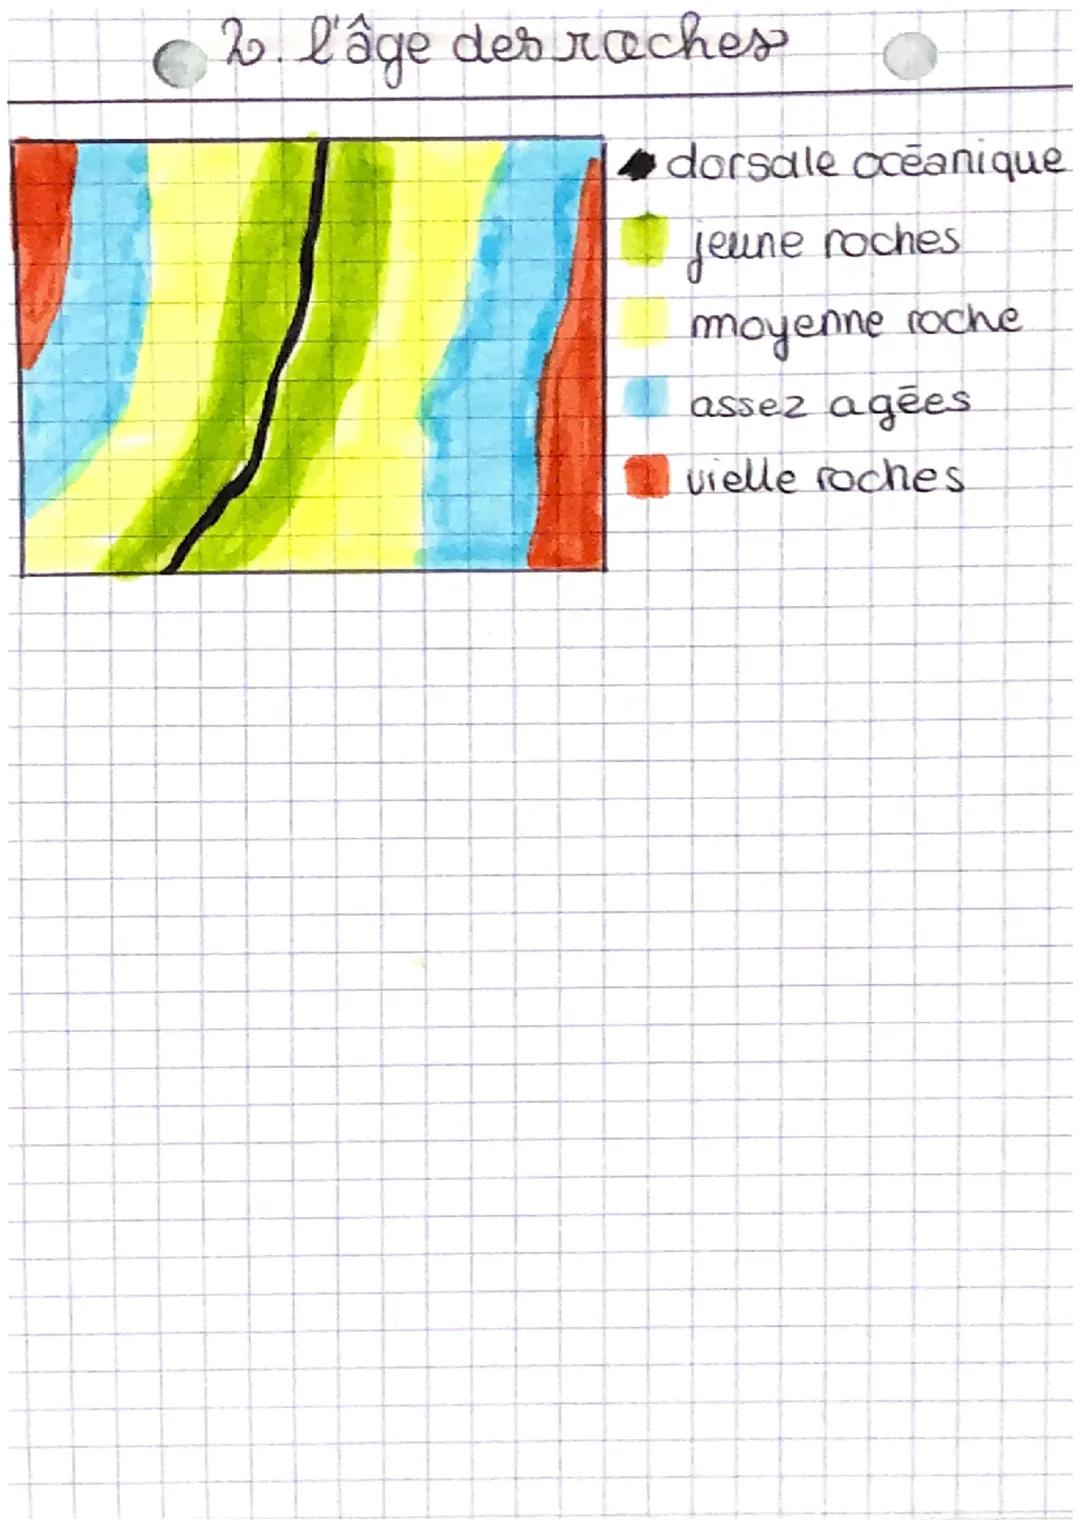 2. l'âge des roches
dorsale océanique
jeune roches
moyenne roche
assez agées
vielle roches